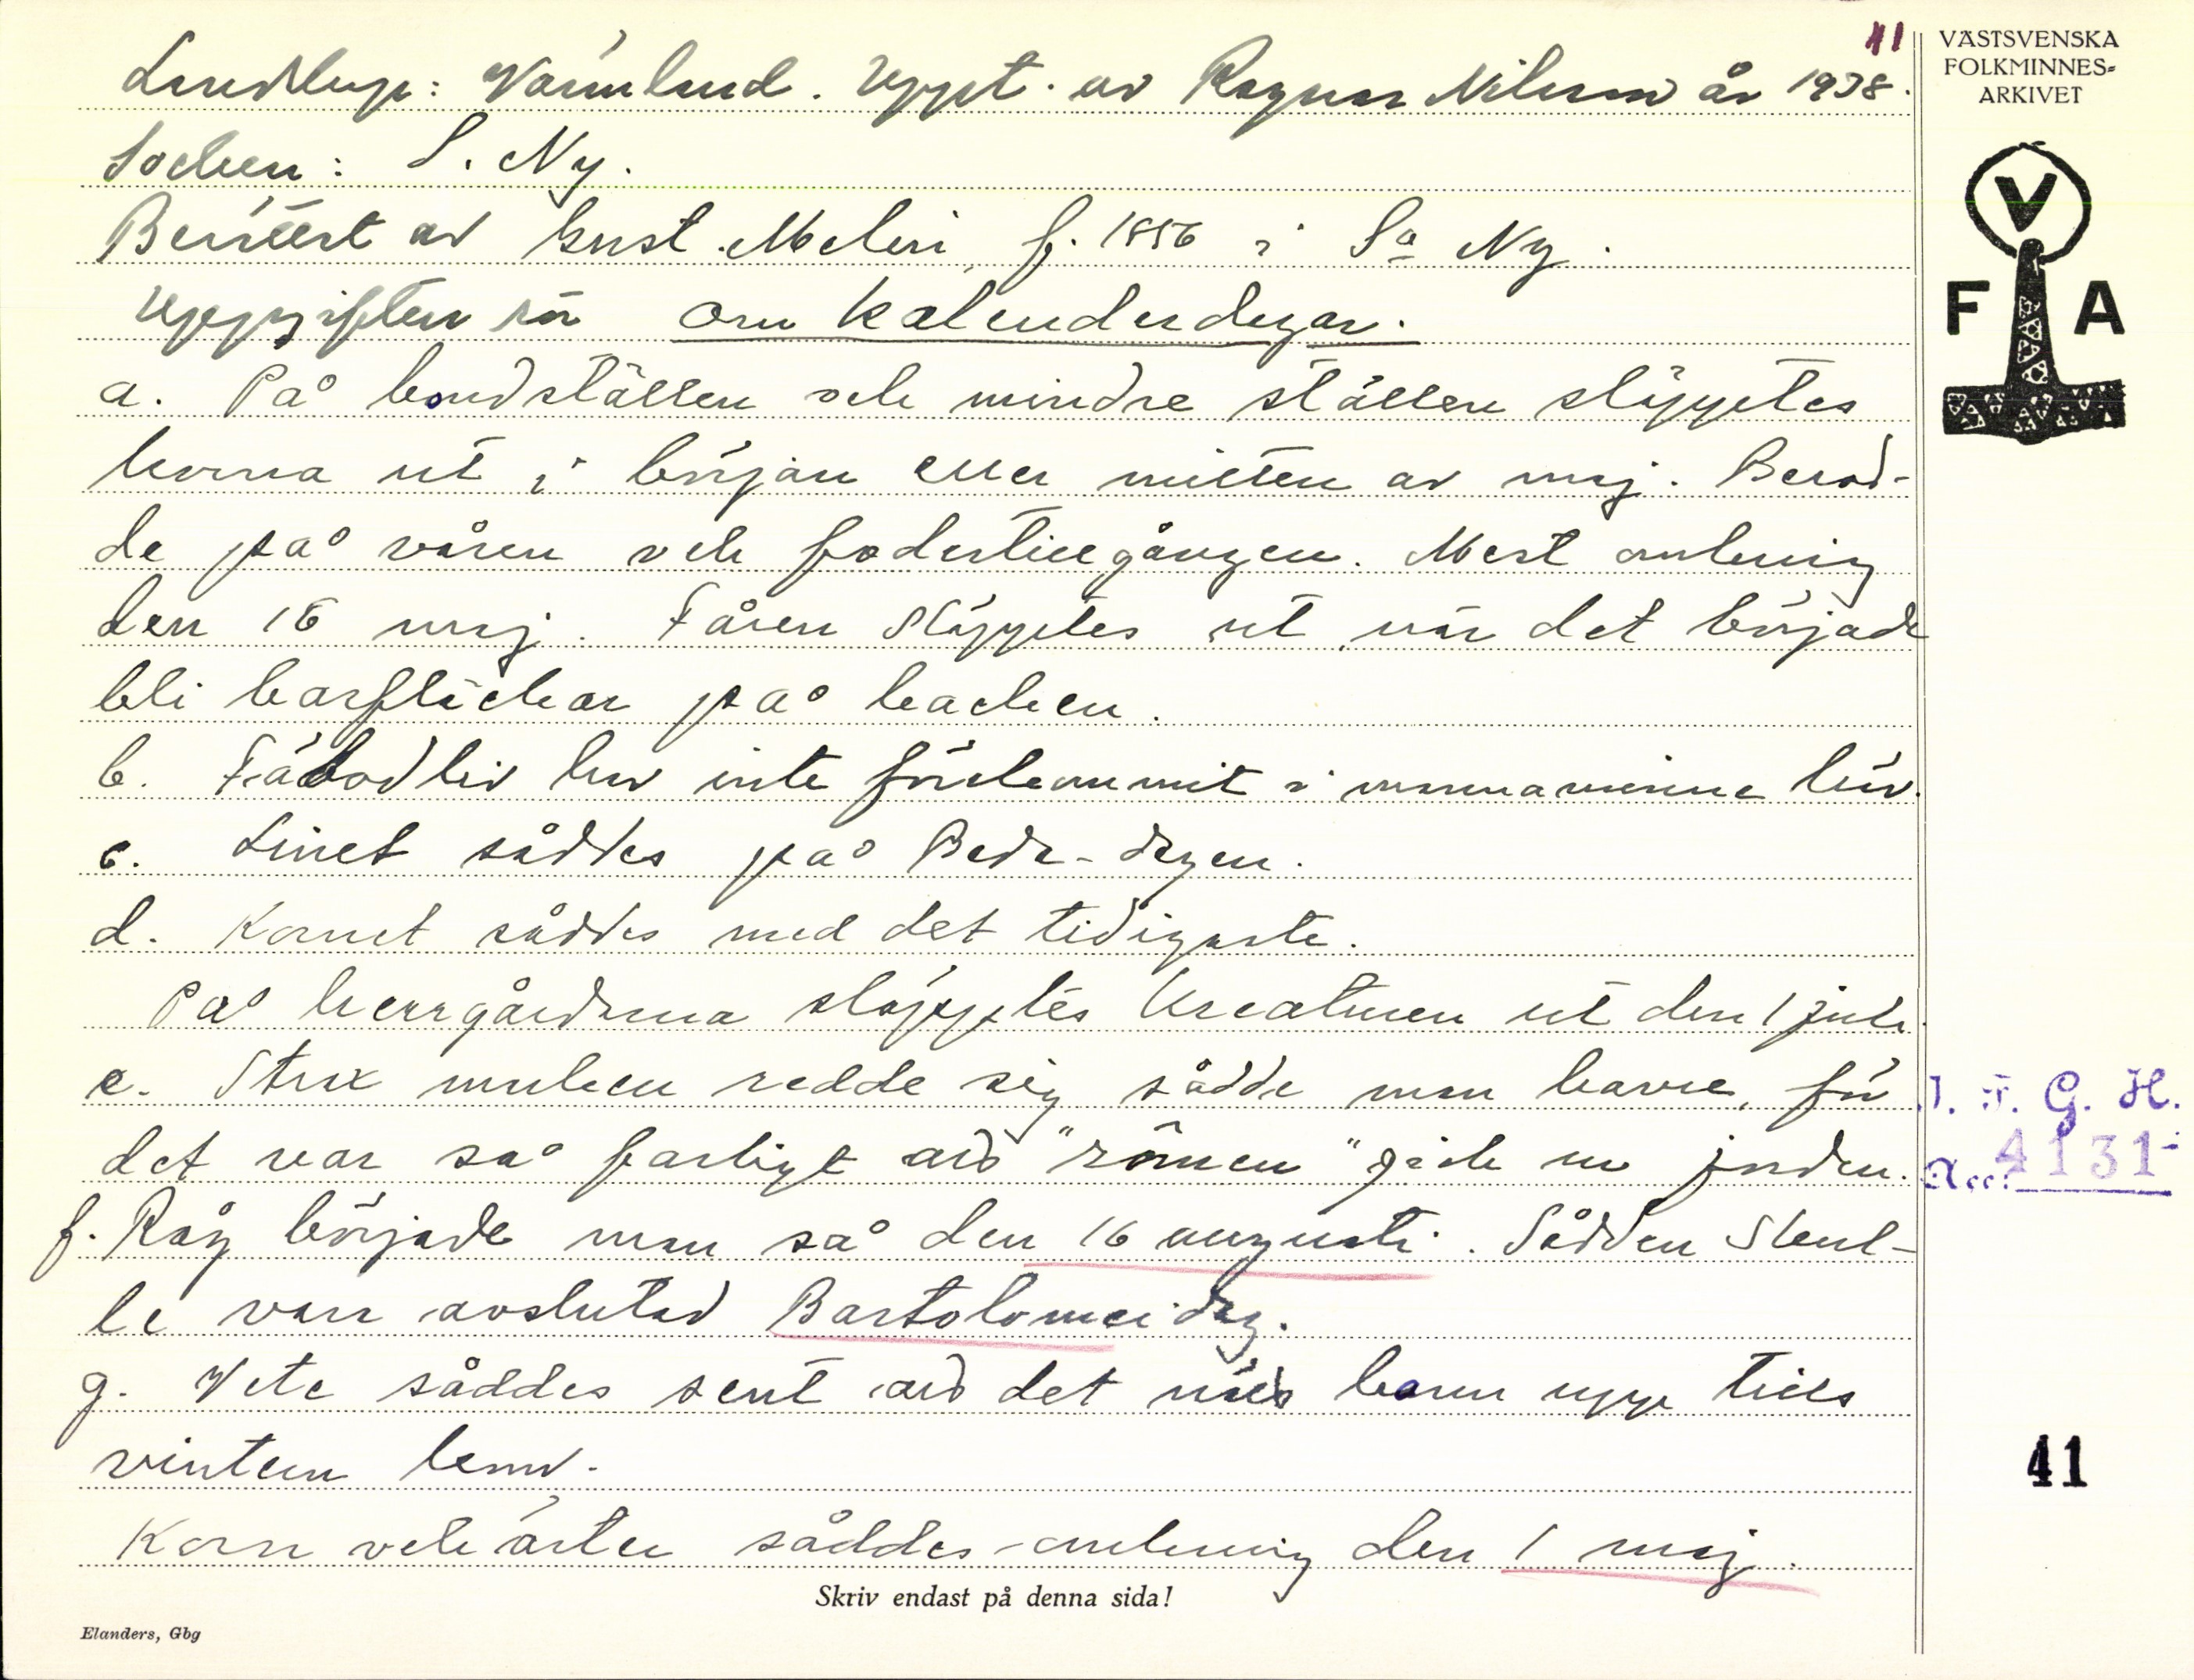 41
Landskap: Värmland. Uppt. av Ragnar Nilsson år 1938.
Socken: S. Ny.
Berättat av Gust. Melin, f. 1856 i Sa Ny.
Uppgifter rör om kalenderdagar.
a. På bondställen och mindre ställen släpptes
korna ut i början eller mitten av maj. Berod-
de på våren och fodertillgången. Mest omkring
den 18 maj. Fåren släpptes ut när det började
bli barfläckar på backen.
b. Fäbodliv har inte förekommit i mannaminne här.
c. Linet såddes på Beda-dagen.
d. Kornet såddes med det tidigaste.
På herrgårdarna släpptes kreaturen ut den 1 juli.
e. Strax marken redde sig sådde man havre, för
det var så farligt att "råmen" gick ur jorden.
f. Råg började man så den 16 augusti. Sådden skul-
le vara avslutad Bartolomeidag.
g. Vete såddes sent att det nätt kom upp tills
vintern kom.
Korn och ärter såddes omkring den 1 maj.
Skriv endast på denna sida!
Elanders, Gbg
VÄSTSVENSKA
FOLKMINNES-
ARKIVET
V
F A
I. F. G. H.
Acc. 4131
41